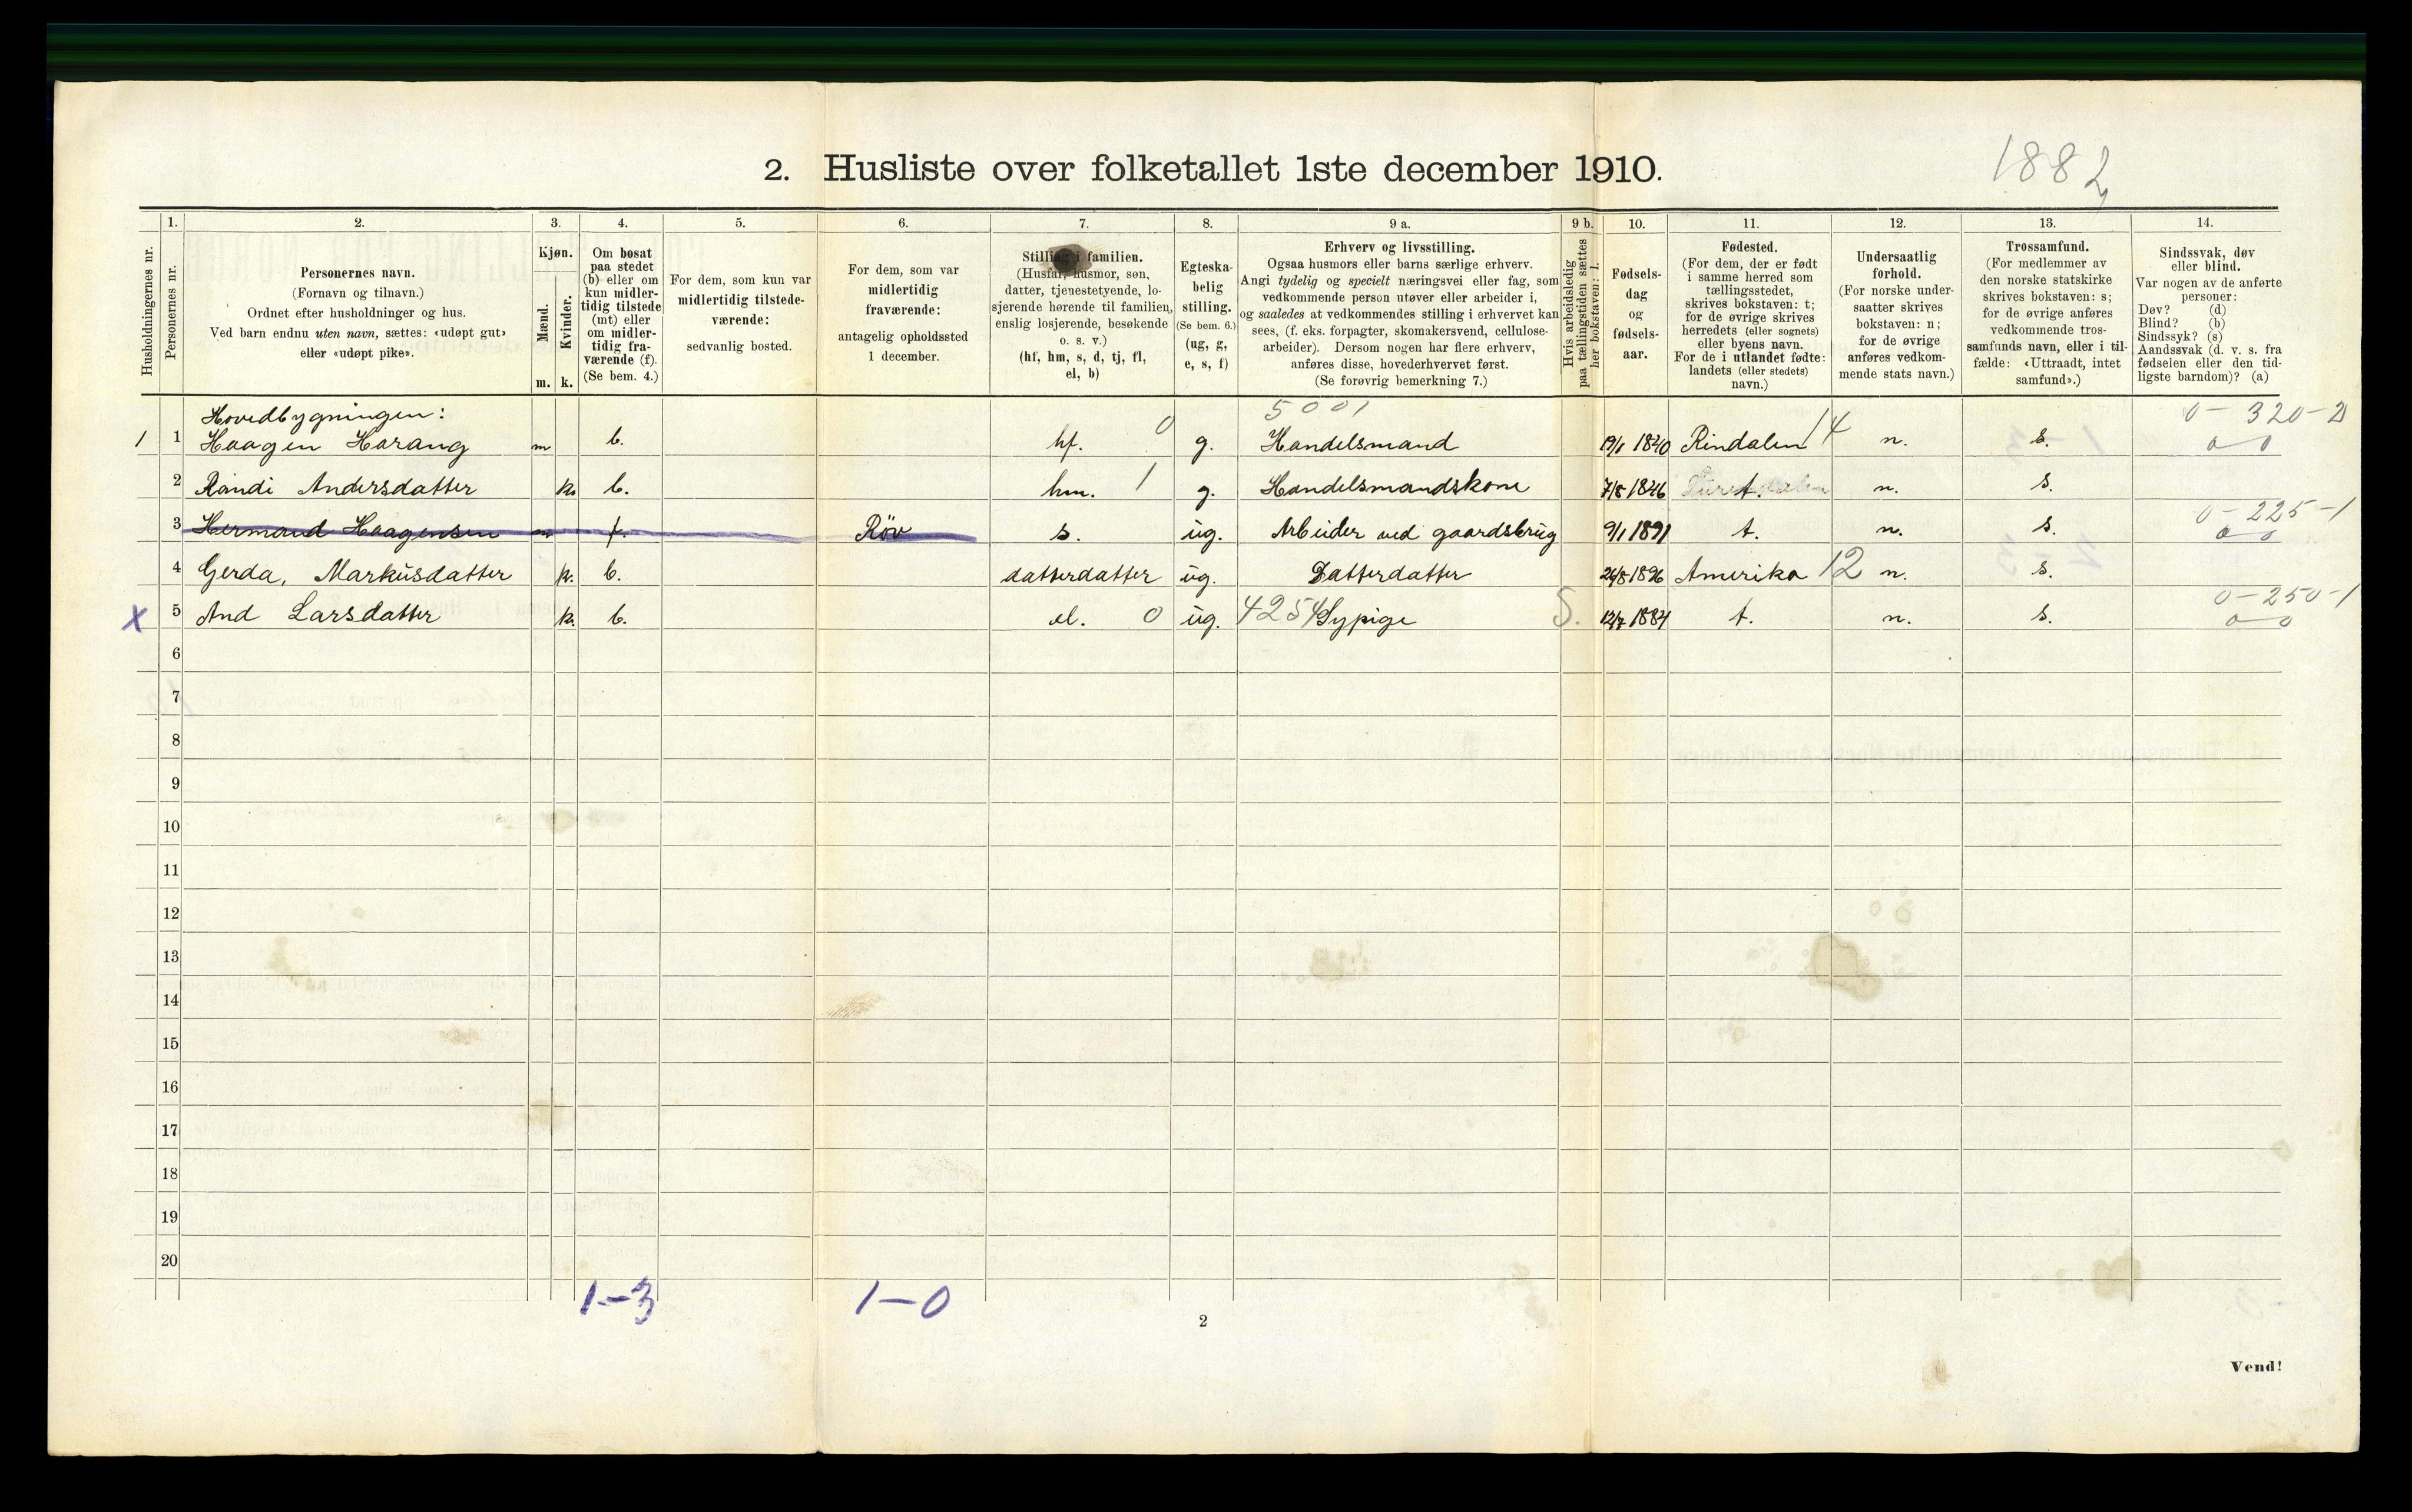 1882
2. Husliste over folketallet 1ste december 1910.
Husholdningernes nr.
1.
Personernes nr.
2.
Personernes navn.
(Fornavn og tilnavn.)
Ordnet efter husholdninger og hus.
Ved barn endnu uten navn, sættes: «udøpt gut»
eller «udøpt pike».
3.
Kjøn.
Mænd.
Kvinder.
m. k.
4.
Om bosat
paa stedet
(b) eller om
kun midler-
tidig tilstede
(mt) eller
om midler-
tidig fra-
værende (f).
(Se bem. 4.)
5.
For dem, som kun var
midlertidig tilstede-
værende:
sedvanlig bosted.
6.
For dem, som var
midlertidig
fraværende:
antagelig opholdssted
1 december.
7.
Stilling i familien.
(Husfar, husmor, søn,
datter, tjenestetyende, lo-
sjerende hørende til familien,
enslig losjerende, besøkende
o. s. v.)
(hf, hm, s, d, tj, fl,
el, b)
8.
Egteska-
belig
stilling.
(Se bem. 6.)
(ug, g,
e, s, f)
9 a.
Erhverv og livsstilling.
Ogsaa husmors eller barns særlige erhverv.
Angi tydelig og specielt næringsvei eller fag, som
vedkommende person utøver eller arbeider i,
og saaledes at vedkommendes stilling i erhvervet kan
sees, (f. eks. forpagter, skomakersvend, cellulose-
arbeider). Dersom nogen har flere erhverv,
anføres disse, hovederhvervet først.
(Se forøvrig bemerkning 7.)
9 b.
Hvis arbeidsledig
paa tællingstiden sættes
her bokstaven: l.
10.
Fødsels-
dag
og
fødsels-
aar.
11.
Fødested.
(For dem, der er født
i samme herred som
tællingsstedet,
skrives bokstaven: t;
for de øvrige skrives
herredets (eller sognets)
eller byens navn.
For de i utlandet fødte:
landets (eller stedets)
navn.)
12.
Undersaatlig
forhold.
(For norske under-
saatter skrives
bokstaven: n;
for de øvrige
anføres vedkom-
mende stats navn.)
13.
Trossamfund.
(For medlemmer av
den norske statskirke
skrives bokstaven: s;
for de øvrige anføres
vedkommende tros-
samfunds navn, eller i til-
fælde: «Uttraadt, intet
samfund».)
14.
Sindssvak, døv
eller blind.
Var nogen av de anførte
personer:
Døv? (d)
Blind? (b)
Sindssyk? (s)
Aandssvak (d. v. s. fra
fødselen eller den tid-
ligste barndom)? (a)
Hovedbygningen: 5001 0-320-2
1 1 Haagen Harang m b. hf. 0 g. Handelsmand 19/1 1840 Rindalen 14 n. s. 0 0
2 Randi Andersdatter k. b. hm. 1 g. Handelsmandskone 7/8 1846 t. n. s.
3 Hermand Haagensen m f. Röv s. ug. Arbeider ved gaardsbrug 9/1 1891 t. n. s. 0-225-1
0 0
4 Gerda, Markusdatter k. b. datterdatter ug. Datterdatter 24/8 1896 Amerika 12 n. s.
X 5 And Larsdatter k. b. el. 0 ug. 4254 Sypige S. 12/7 1884 t. n. s. 0-250-1
0 0
6
7
8
9
10
11
12
13
14
15
16
17
18
19
20
1-3 1-0
2
Vend!